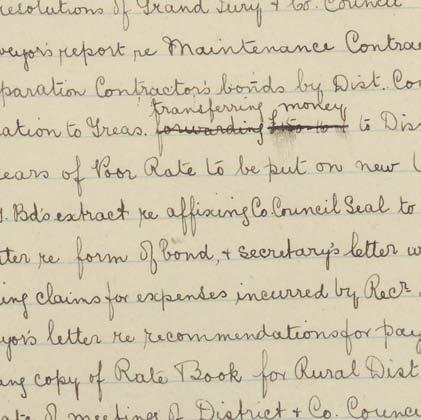 resolutions of Grand Jury & Co. Council
veyor's report re Maintenance Contrac
paration Contractor's bonds by Dist. Cou
transferring money
ation to Treas. forwarding to Dis
ears of Poor Rate to be put on new
Bd's extract re affixing Co. Council Seal to
tter re form of bond, & secretary's letter w
ing claims for expenses incurred by Recr
yor's letter re recommendations for pay
ing copy of Rate Book for Rural Dist
ate of meetings of District & Co. Counci